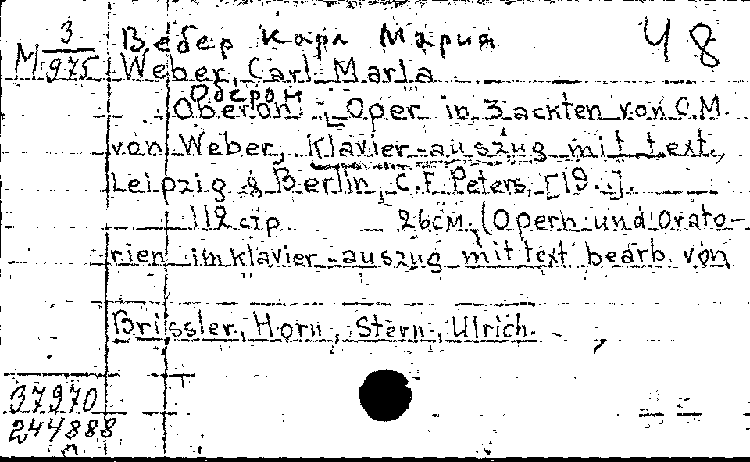 3 Вебер Карл Мария 48
М 975 Weber, Carl Maria
Оберон
Oberon; Oper in 3 ackten von C.M.
von Weber, Klavier-auszug mit text.,
Leipzig & Berlin, C.F. Peters, [19..].
112 стр. 26см. (Opern und Orato-
rien im klavier-auszug mit text bearb. von
Brissler, Horn, Stern, Ulrich.
37970
244888
п